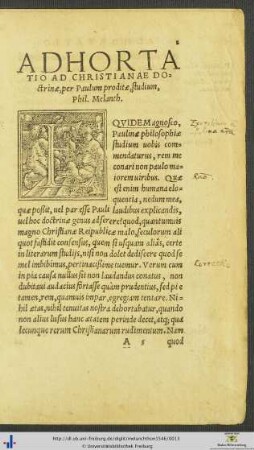 ADHORTA
TIO AD CHRISTIANAE DO-
ctrinæ, per Paulum proditæ, studium,
Phil. Melanch.
EQVIDEM agnosco,
Paulinæ philosophiæ
studium uobis com-
mendaturus, rem me
conari non paulo ma
iorem uiribus. Quæ
est enim humana elo
quentia, nedum mea,
quæ possit, uel par esse Pauli laudibus explicandis,
uel hoc doctrinæ genus adserere? quod, quantumuis
magno Christianæ Reipublicæ malo, seculorum ali
quot fastidit consensus, quem si usquam aliàs, certe
in literarum studijs, nisi non dolet dedisceri quod se
mel imbibimus, pertinacissime tuemur. Verum cum
in pia causa nullus sit non laudandus conatus, non
dubitaui audatius fortasse quàm prudentius, sed pie
tamen, rem, quamuis impar, egregiam tentare. Ni-
hil ætas, nihil tenuitas nostra dehortabatur, quando
non alius lusus hanc ætatem perinde decet, atque quæ-
lecunque rerum Christianarum rudimentum. Nam
A 5 quod
http://dl.ub.uni-freiburg.de/diglit/melanchthon1546/0013
© Universitätsbibliothek Freiburg